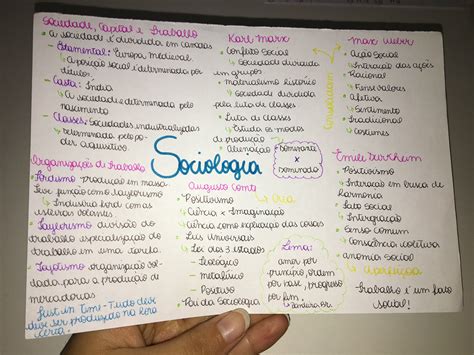 Sociedade, Capital e Trabalho
A sociedade é dividida em camadas
Estamental: Europa medieval
A posição social é determinada por
títulos.
Casta: Índia
A sociedade é determinada pelo
nascimento
Classes: Sociedades industrializadas
Determinada pelo po-
der aquisitivo
Organizações do trabalho
Fordismo produção em massa
Teve junção com Taylorismo
Indústria Ford com as
esteiras rolantes
Taylorismo divisão do
trabalho especialização do
trabalho em uma tarefa.
Toyotismo organização
voltada para a produção de
mercadorias
Just in Time - Tudo deve
deve ser produzido na hora
certa.
Sociologia
Karl Marx
Conflito Social
Sociedade dividida
em grupos
materialismo histórico
Sociedade dividida
pela luta de classes
Luta de classes
Estuda os modos
de produção
Alienação
Dominante
x
Dominado
Augusto Comte
Positivismo
Ciência x Imaginação
ciência como explicação das coisas
Leis Universais
Lei dos 3 estados
Teológico
metafísico
Positivo
Pai da Sociologia
cria
Lema:
amor por
princípio, ordem
por base, progresso
por fim.
Bandeira BR
Max Weber
Ação Social
Interação das ações
Racional
Fins e valores
Afetiva
Sentimento
Tradicional
Costumes
Émile Durkheim
Positivismo
Interação em busca de
harmonia
Fato Social
Integração
Senso comum
Consciência coletiva
anomia Social
aperfeiçoa
Trabalho é um fato
social!